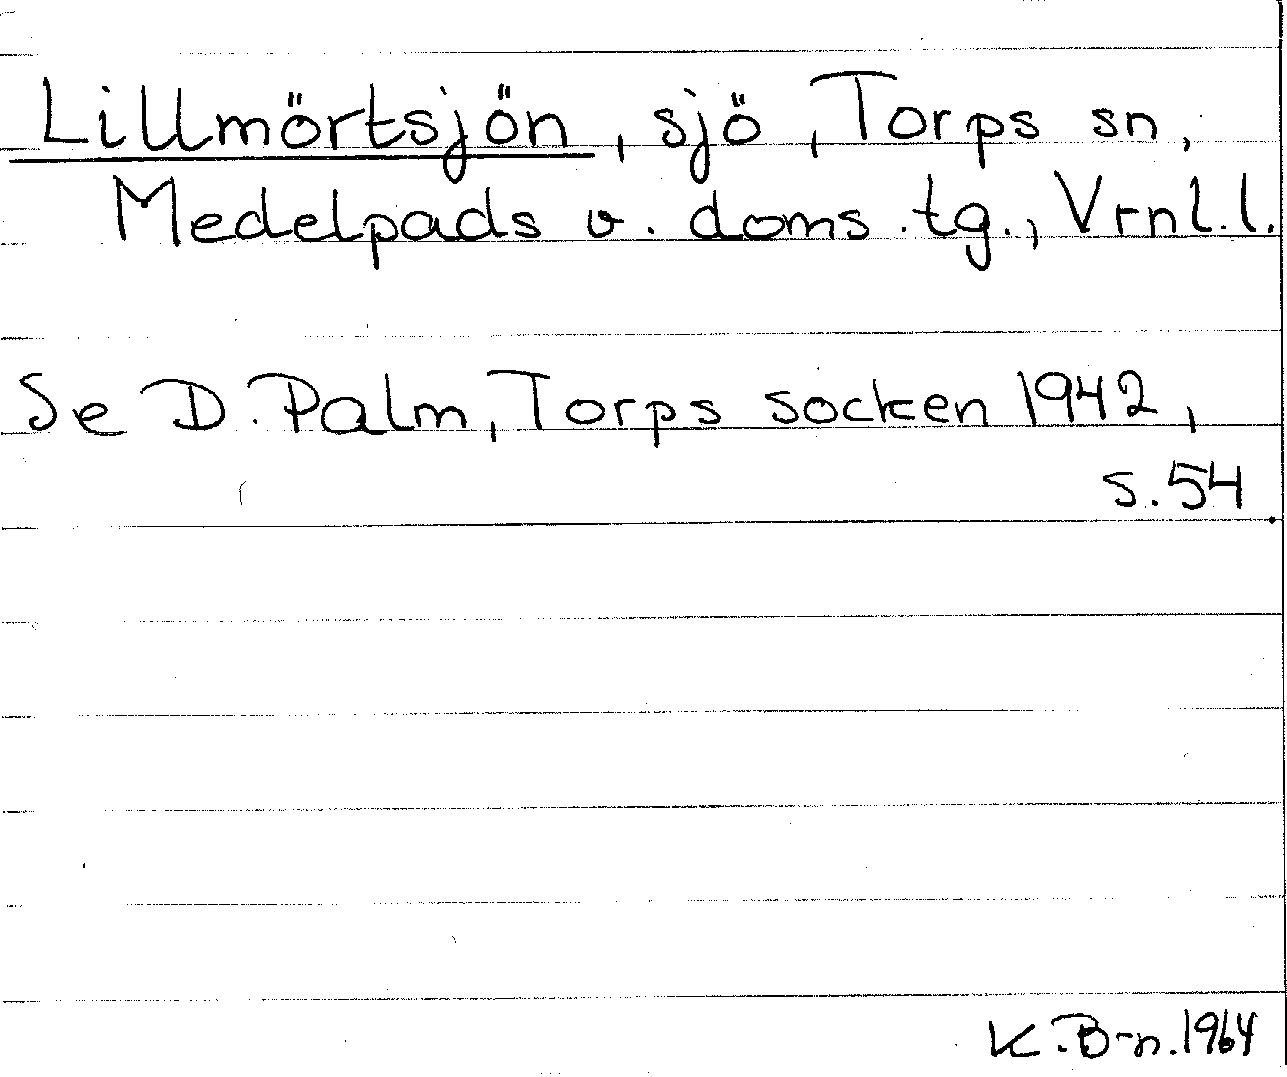 Lillmörtsjön, sjö, Torps sn,
Medelpads v. doms. tg., Vrnl. l.
Se D. Palm, Torps socken 1942,
s. 54
K. B-n. 1964